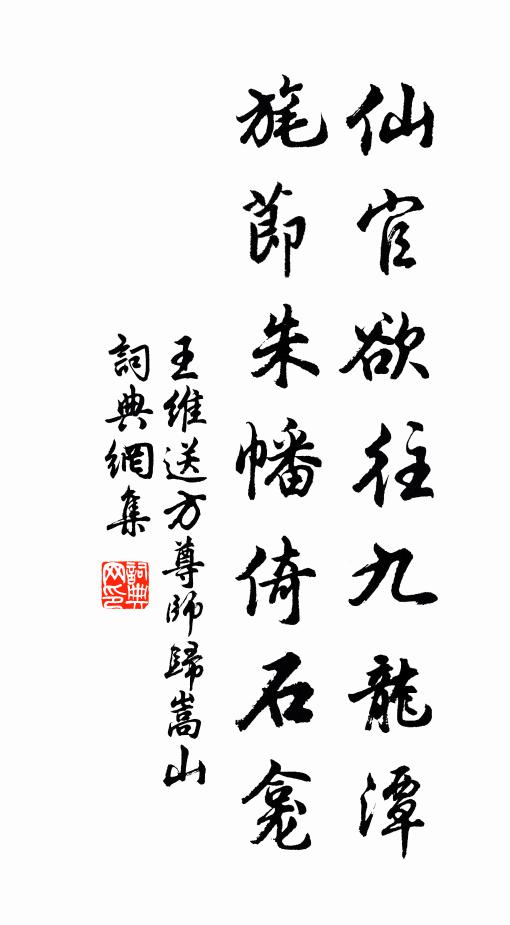 仙官欲往九龍潭
旄節朱幡倚石龕
王維送方尊師歸嵩山
詞典網集
詞典网印